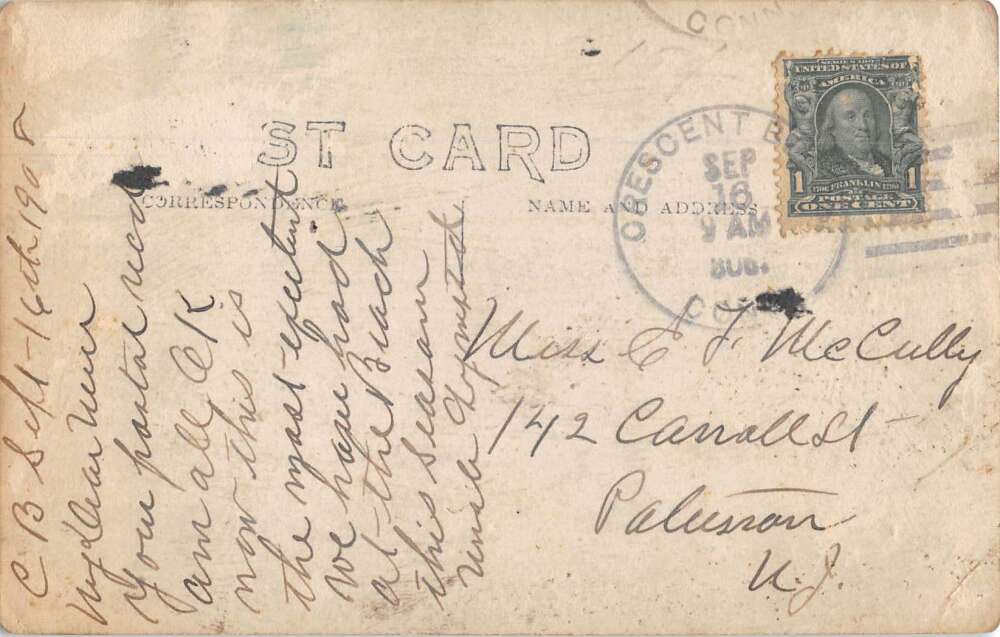 CONN
SERIES 1902
UNITED STATES OF
AMERICA
1 1706 FRANKLIN 1790 1
POSTAGE
ONE CENT
CRESCENT B
SEP
16
9 AM
CONN
ST CARD
CORRESPONDENCE
NAME AND ADDRESS
C B Sept-16th 1908
My Dear
Your postal recd
am all O K
now this is
the most excellent
we have had
at the Beach
this season
Uncle
Miss E F McCully
142 Carroll St
Paterson
N.J.